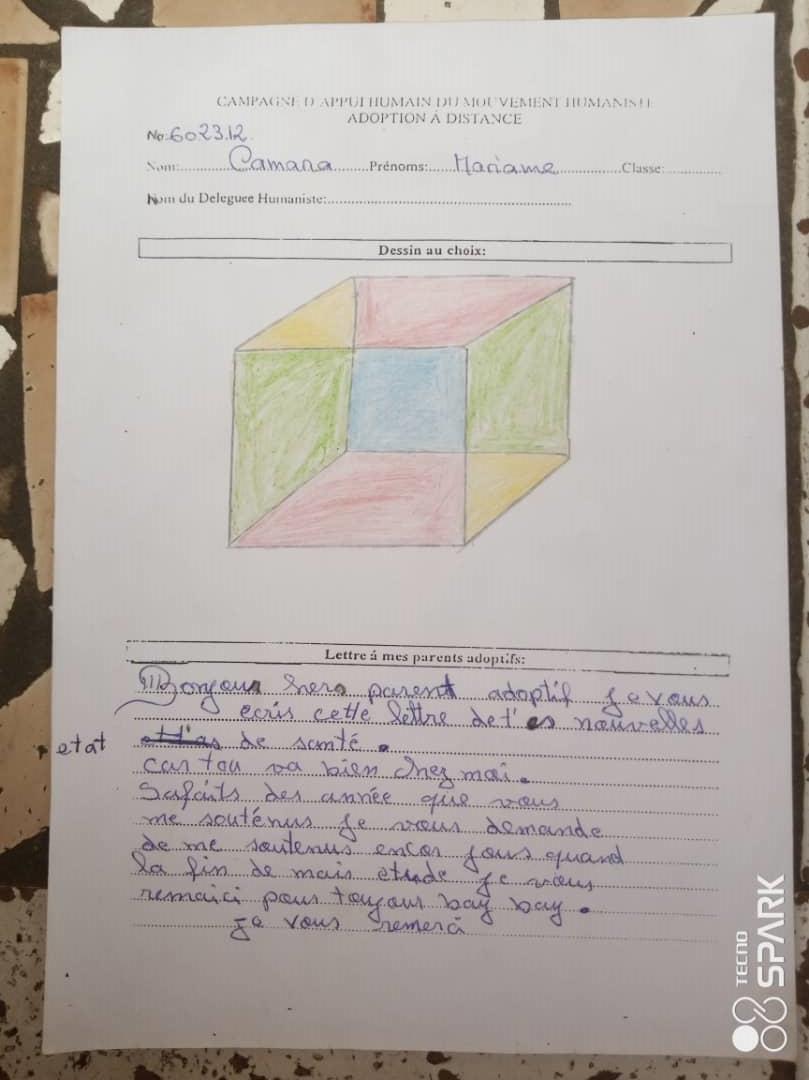 CAMPAGNE D'APPUI HUMAIN DU MOUVEMENT HUMANISTE
ADOPTION À DISTANCE
No: 6023.12
Nom: Camara Prénoms: Mariame Classe:
Nom du Deleguee Humaniste:
Dessin au choix:
Lettre á mes parents adoptifs:
Bonjour hers parent adoptif je vous
ecris cette lettre de t'es nouvelles
etat de santé.
car tou va bien chez moi.
Safaits des année que vous
me souténus je vous demande
de me soutenus encor jous quand
la fin de mais etude je vous
remaici pour toujour bay bay.
je vous remerci
TECNO
SPARK